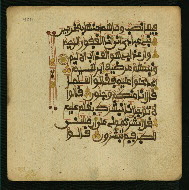 فيها نصب وما هم منها بمخر
جين نبئ عبادي أني أنا الغفور الرحيم
وأن عذابي هو العذاب الأليم
ونبئهم عن ضيف إبرهيم
إذ دخلوا عليه فقالوا سلما
قال إنا منكم وجلون قالوا
لا توجل إنا نبشرك بغلم عليم
قال أبشرتموني على أن مسني
الكبر فبم تبشرون قالوا